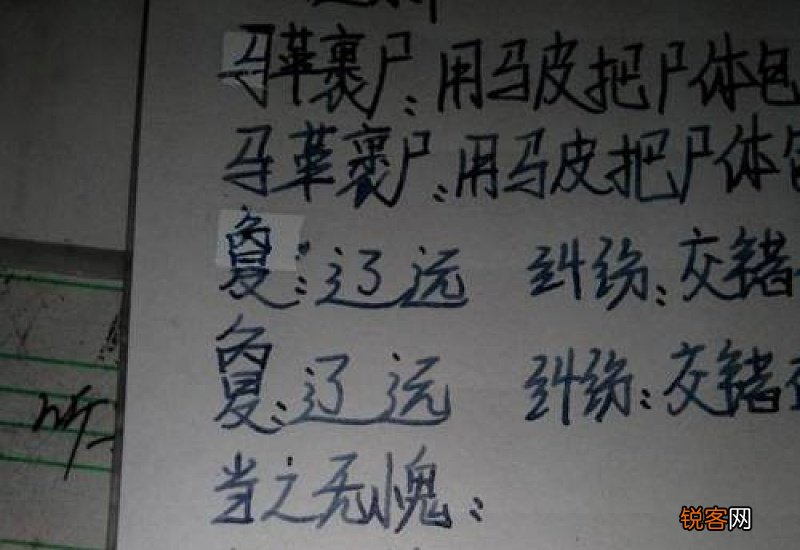 马革裹尸:用马皮把尸体包
马革裹尸:用马皮把尸体
敻:辽远 纠纷:交错
敻:辽远 纠纷:交错
当之无愧:
听
锐客网